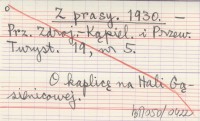 Z prasy. 1930. —
Prz. Zdroj.-Kąpiel. i Przew.
Turyst. 19, nr 5.
O kaplicę na Hali Gą-
sienicowej.